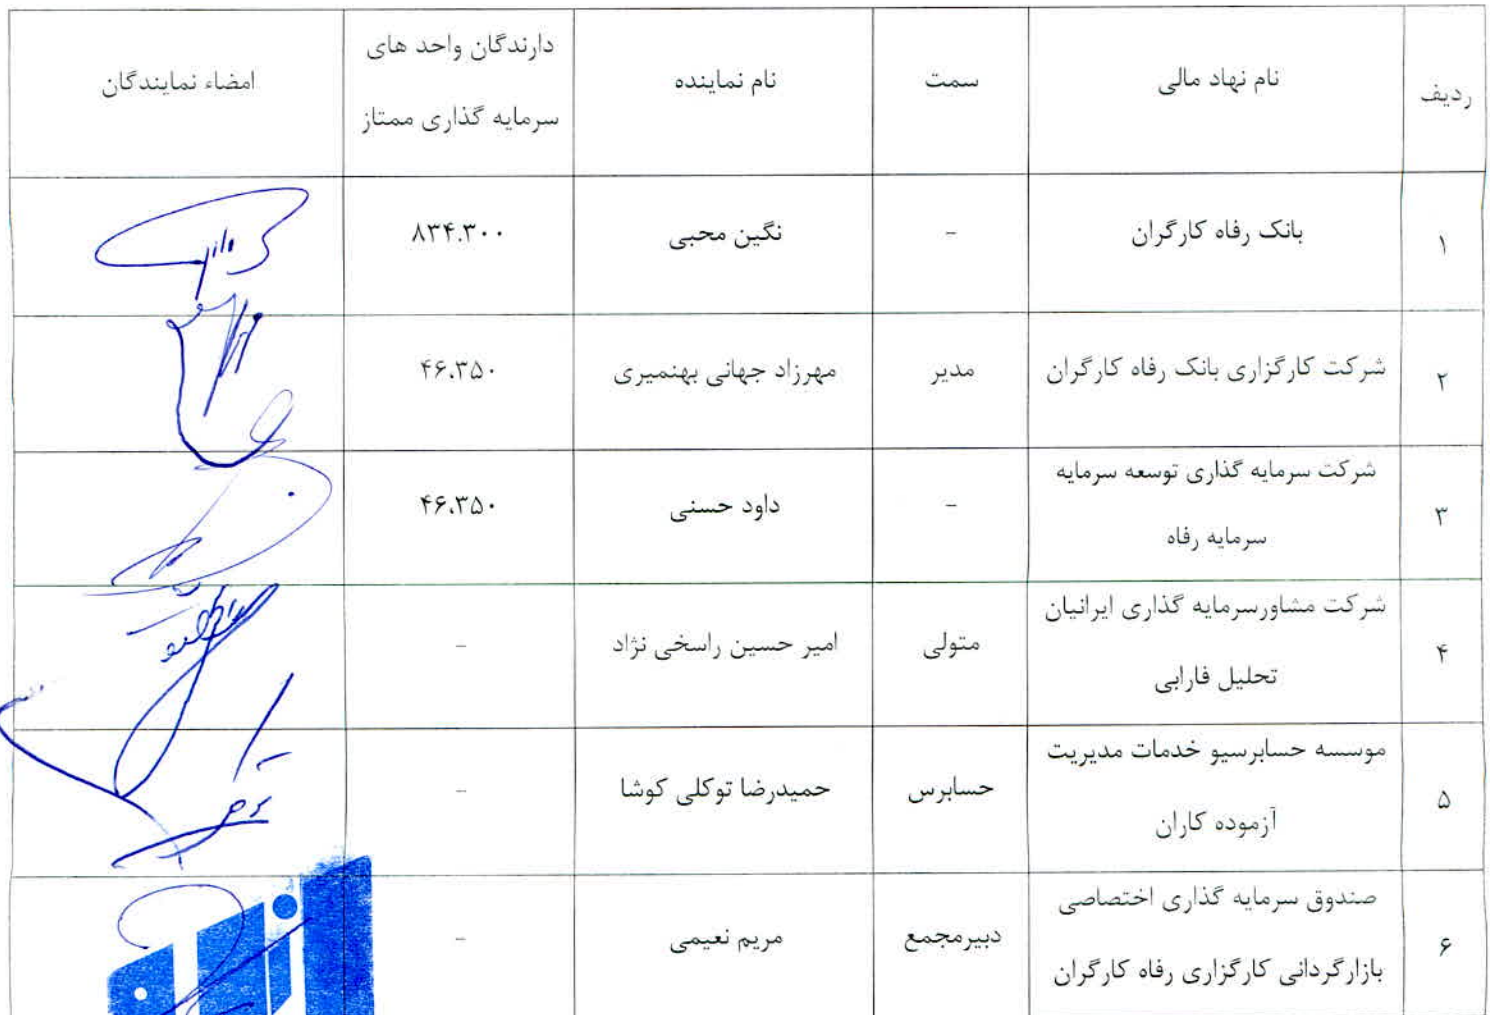 ردیف
نام نهاد مالی
سمت
نام نماینده
دارندگان واحد های
سرمایه گذاری ممتاز
امضاء نمایندگان
۱
بانک رفاه کارگران
-
نگین محبی
۸۳۴.۳۰۰
۲
شرکت کارگزاری بانک رفاه کارگران
مدیر
مهرزاد جهانی بهنمیری
۴۶.۳۵۰
۳
شرکت سرمایه گذاری توسعه سرمایه
سرمایه رفاه
-
داود حسنی
۴۶.۳۵۰
۴
شرکت مشاورسرمایه گذاری ایرانیان
تحلیل فارابی
متولی
امیر حسین راسخی نژاد
-
۵
موسسه حسابرسیو خدمات مدیریت
آزموده کاران
حسابرس
حمیدرضا توکلی کوشا
-
۶
صندوق سرمایه گذاری اختصاصی
بازارگردانی کارگزاری رفاه کارگران
دبیرمجمع
مریم نعیمی
-